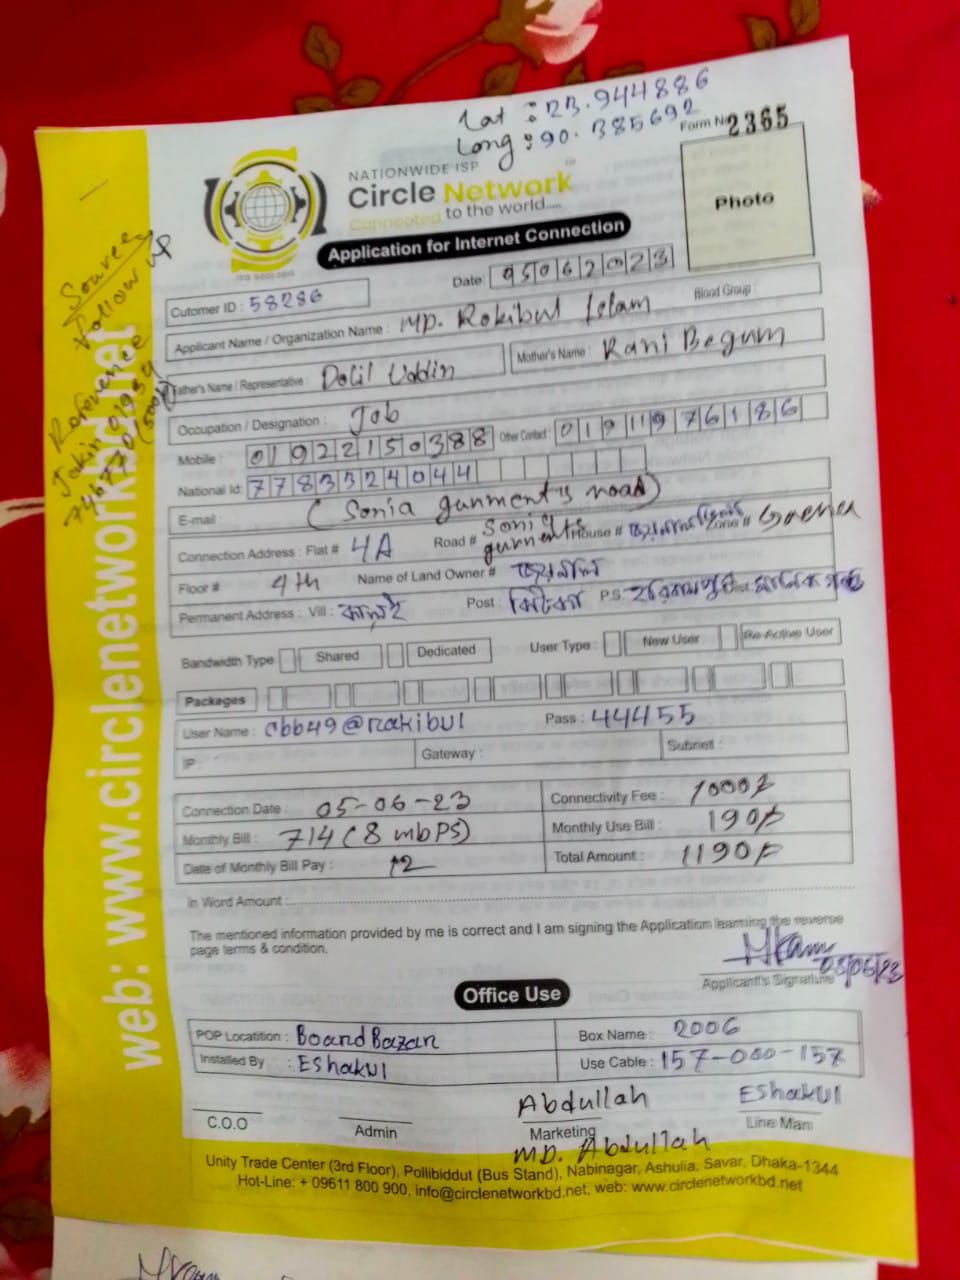 Lat : 23.944886
Long : 90.385692
Form No 2365
NATIONWIDE ISP
Circle Network
Connected to the world.....
Photo
Application for Internet Connection
Date: 05062023
Cutomer ID : 58286
Blood Group :
Applicant Name / Organization Name : MD. Rokibul Islam
Father's Name / Representative : Dolil Uddin Mother's Name : Rani Begum
Occupation / Designation : Job
Mobile : 01922150388 Other Contact : 01911976186
National Id: 7783324044
E-mail : (Sonia garments road)
Connection Address : Flat # 4A Road # Sonia garments House # Zone #
Floor # 4th Name of Land Owner #
Permanent Address : Vill : Post : ঝিটকা P.S. হরিরামপুর Dist. মানিকগঞ্জ
Bandwidth Type Shared Dedicated User Type : New User Re-Active User
Packages
User Name : cbb49@rakibul Pass : 44455
IP : Gateway : Subnet :
Connection Date : 05-06-23 Connectivity Fee : 1000/-
Monthly Bill : 714 (8 mbps) Monthly Use Bill : 190/-
Date of Monthly Bill Pay : 12 Total Amount : 1190/-
In Word Amount :
The mentioned information provided by me is correct and I am signing the Application learning the reverse
page terms & condition.
05/06/23
Applicant's Signature
Office Use
POP Locatition : BoardBazar Box Name : 2006
Installed By : Eshakul Use Cable : 157-000-157
Abdullah Eshakul
C.O.O Admin Marketing Line Man
MD. Abdullah
Unity Trade Center (3rd Floor), Pollibiddut (Bus Stand), Nabinagar, Ashulia, Savar, Dhaka-1344
Hot-Line: + 09611 800 900, info@circlenetworkbd.net, web: www.circlenetworkbd.net
web: www.circlenetworkbd.net
Source
Follow up
Reference